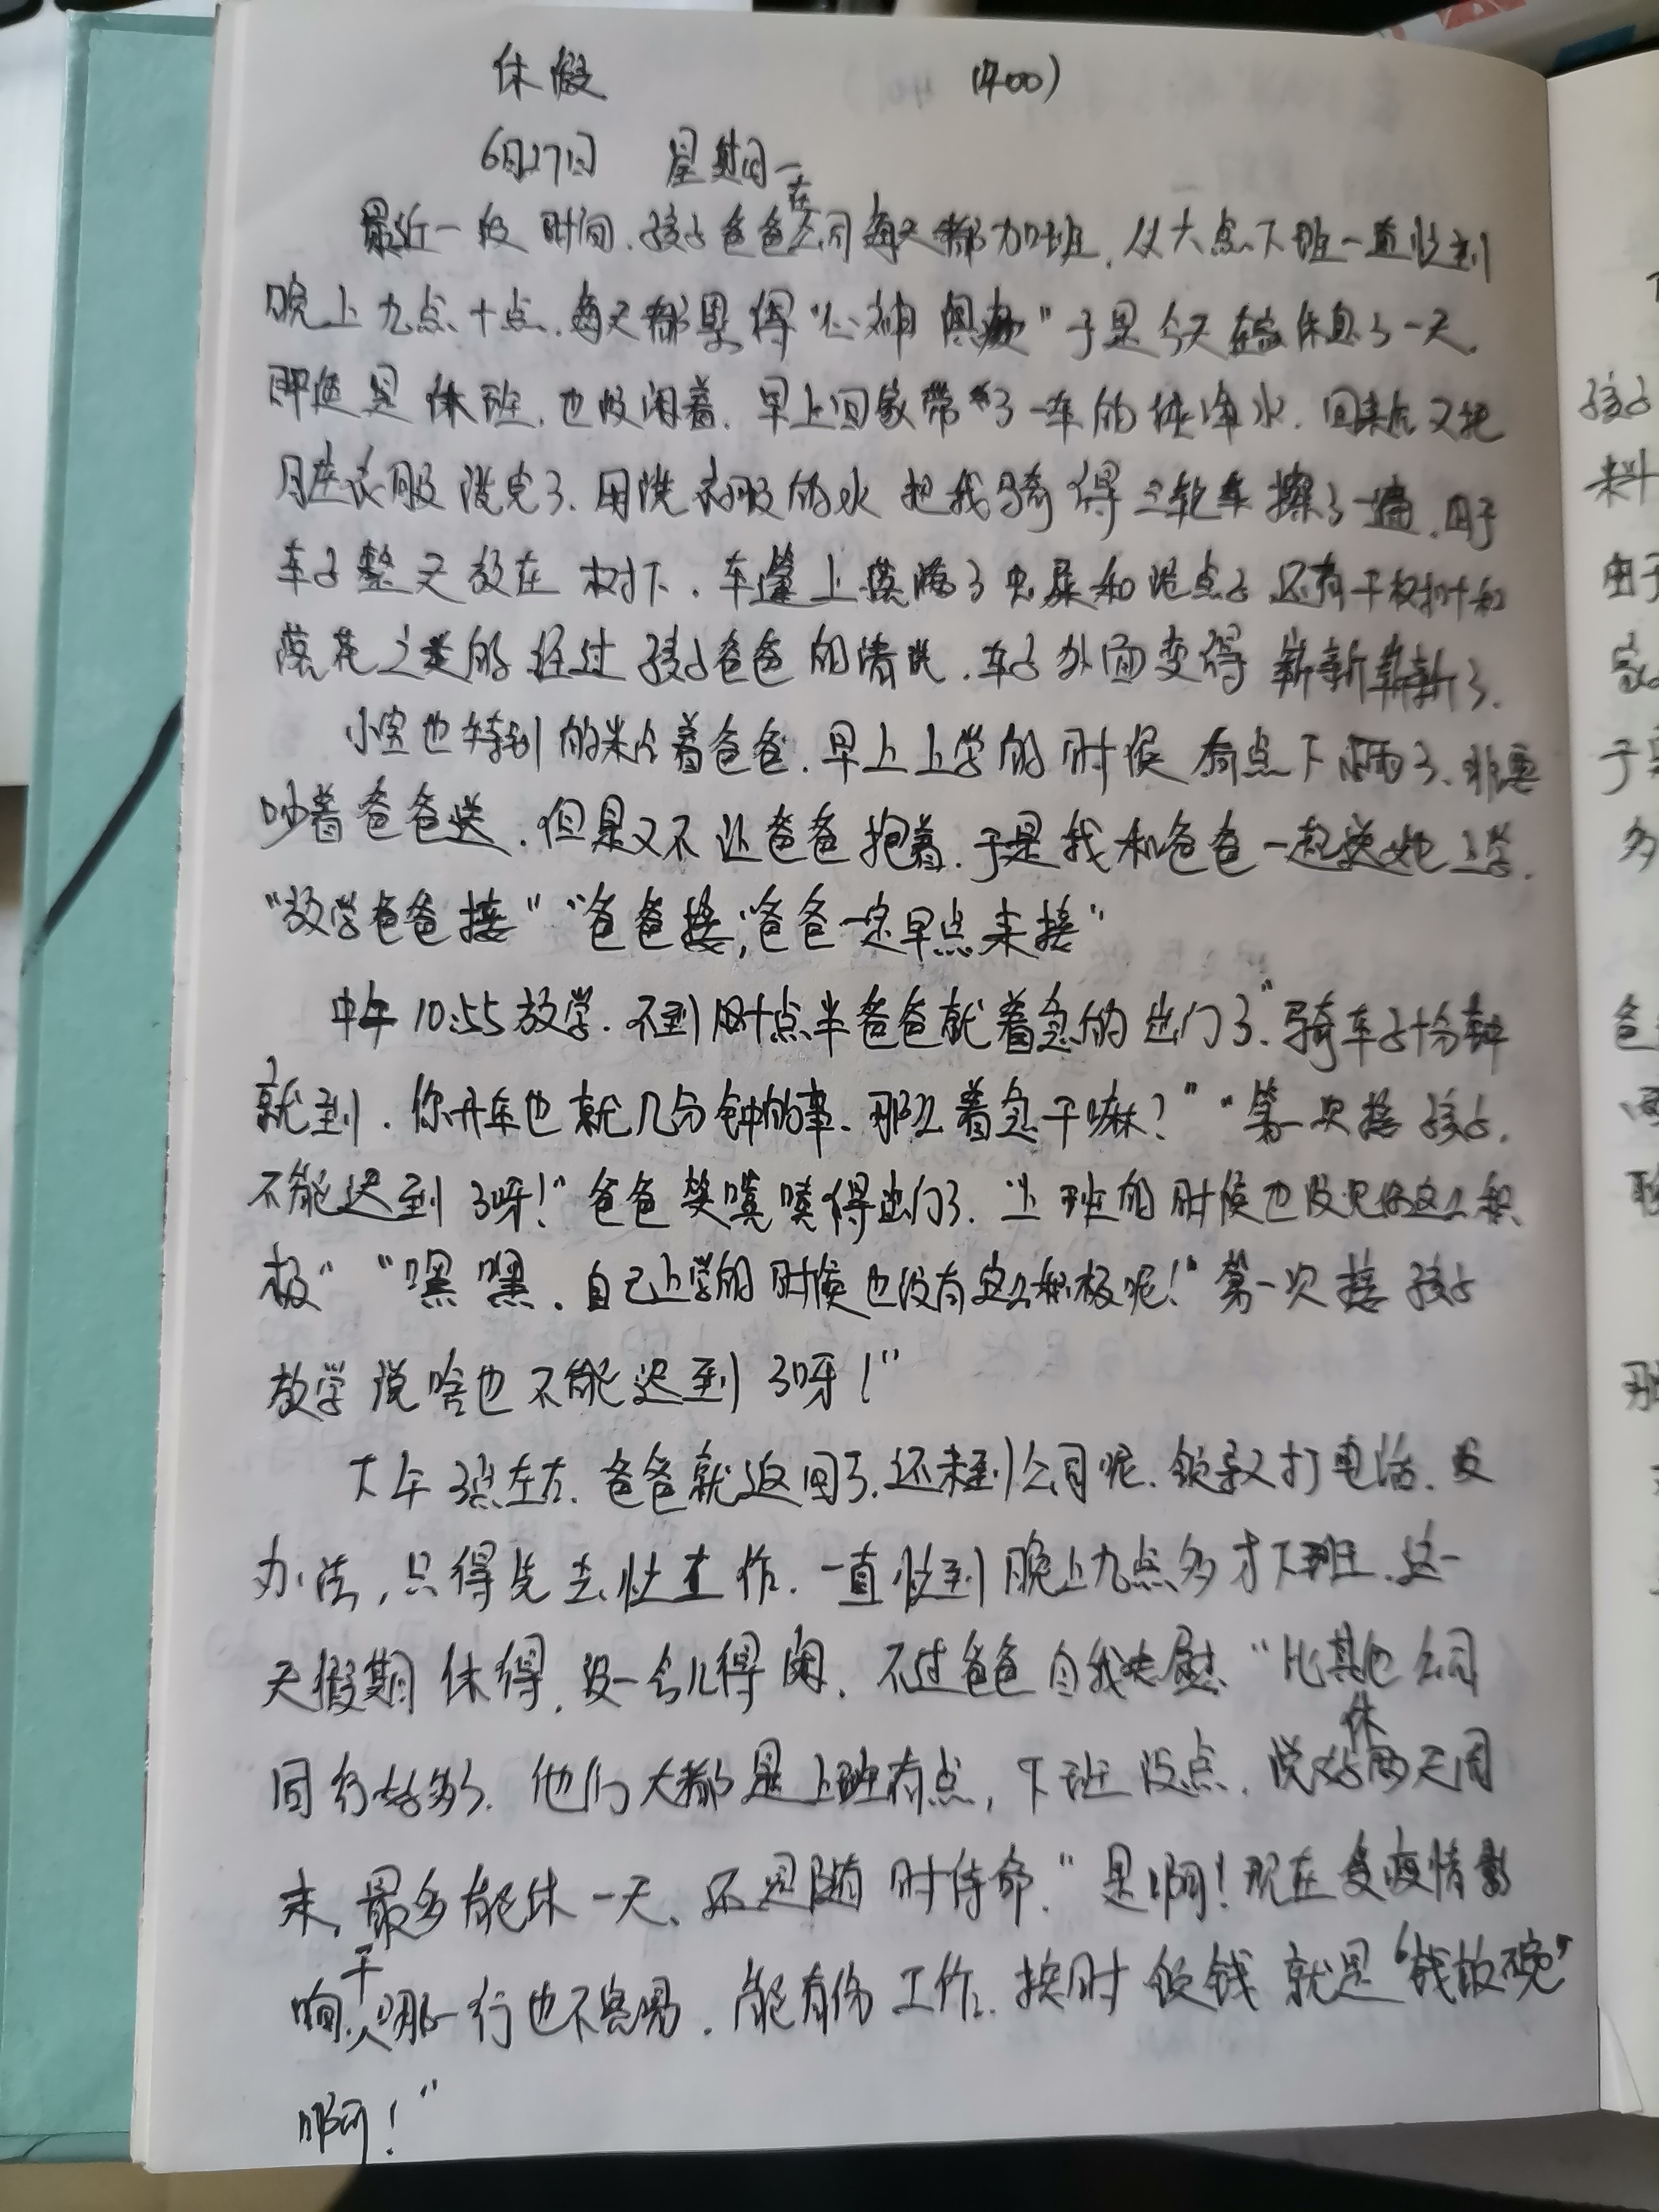 休假 (400)
6月27日 星期一
最近一段时间.孩子爸爸在公司每天都加班.从六点下班一直忙到
晚上九点十点.每天都累得"心神俱疲"于是今天在家休息了一天.
即使是休班.也没闲着.早上回家带了一车的纯净水.回来后又把
衣服洗完了.用洗衣服的水把我骑得三轮车擦了一遍.由于
车子整天放在树下.车篷上落满了虫屎和泥点子还有干树叶和
落花之类的经过孩子爸爸的清洗.车子外面变得崭新崭新了.
小宝也特别的粘着爸爸.早上上学的时候有点下雨了.非要
吵着爸爸送.但是又不让爸爸抱着.于是我和爸爸一起送她上学.
"放学爸爸接""爸爸接,爸爸一定早点来接"
中午10:55放学.不到时点半爸爸就着急的出门了."骑车子十分钟
就到.你开车也就几分钟的事.那么着急干嘛?""第一次接孩子.
不能迟到了呀!"爸爸笑嘻嘻得出门了."上班的时候也没见你这么积
极""嘿嘿.自己上学的时候也没有这么积极呢!"第一次接孩子
放学说啥也不能迟到了呀!"
下午3点左右.爸爸就返回了.还未到公司呢.领导又打电话.没
办法,只得先去忙工作.一直忙到晚上九点多才下班.这一
天假期休得.没一会儿得闲.不过爸爸自我安慰"比其他公司
同行好多了.他们大都是上班有点,下班没点.说好休两天周
末,最多能休一天、还是随时待命."是啊!现在受疫情影
响.干哪一行也不容易.能有份工作.按时领钱就是"钱饭碗"
啊!"
孩子
料
由于
家
于
多
爸